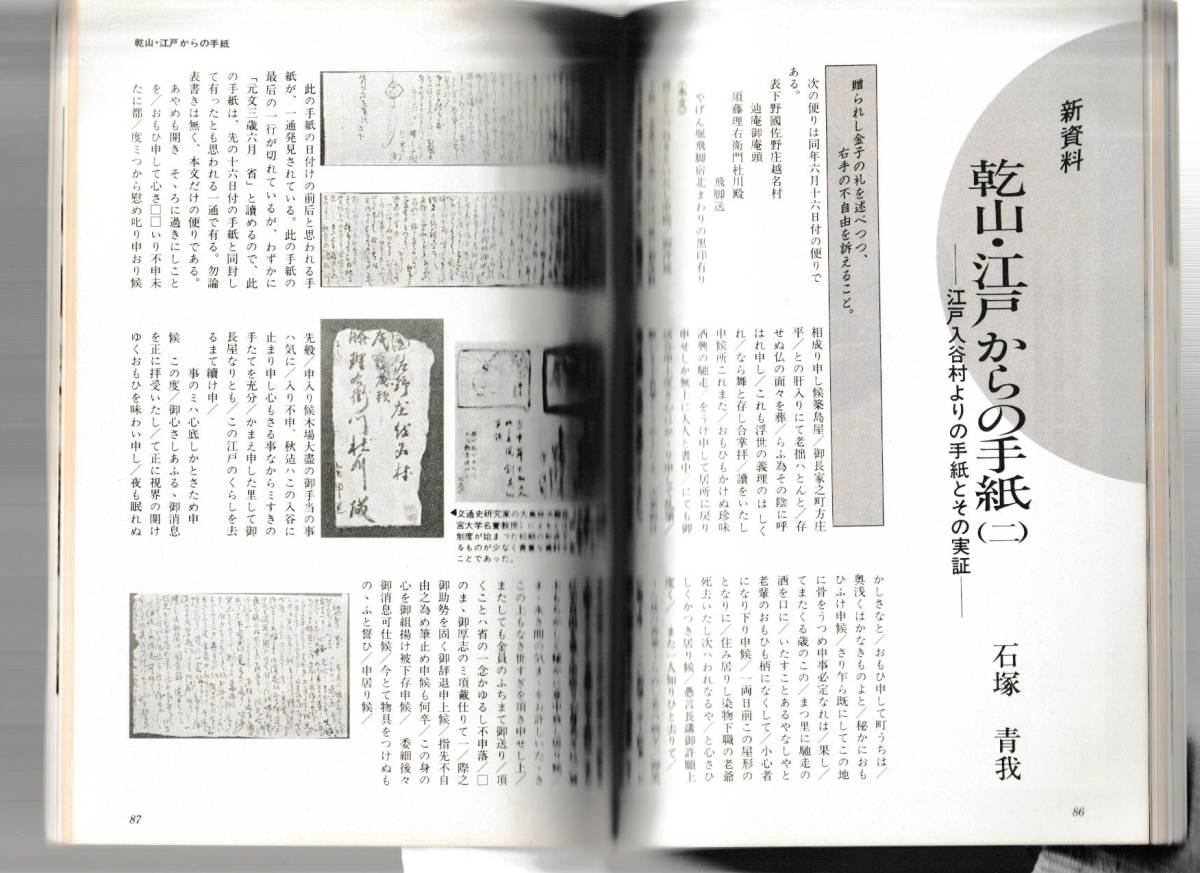 新資料
乾山・江戸からの手紙(二)
――江戸入谷村よりの手紙とその実証――
石塚 青我
贈られし金子の礼を述べつつ、
右手の不自由を訴えること。
次の便りは同年六月十六日付の便りで
ある。
表下野國佐野庄越名村
辿庵御庵頭
須藤理右衛門杜川殿
飛脚送
やげん堀飛脚宿北まわりの黒印有り
相成り申し候築島屋/御長家之町方庄
平/との肝入りにて老拙ハとんと/存
せぬ仏の面々を葬/らふ為その陰に呼
はれ申し/これも浮世の義理のはしく
れ/なら舞と存し合掌拝/讀をいたし
申候所これまた/おもひもかけぬ珍味
酒興の馳走/をうけ申して居所に戻り
申せしか無上に人人と書中/にても御
かしさなと/おもひ申して町うちは/
奥浅くはかなきものよと/秘かにおも
ひふけ申候/さり乍ら既にしてこの地
に骨をうつめ申事必定なれは/果し/
てまたくる歳のこの/まつ里に馳走の
酒を口に/いたすことあるやなしやと
老輩のおもひも柄になくして/小心者
になり下り申候/一両日前この屋形の
となりに/住み居りし染物下職の老爺
死去いたし次ハわれなるや/と心さひ
しくかつき居り候/愚言長講御許願上
度く/ また一人知りひと去りて/
86
乾山・江戸からの手紙
此の手紙の日付けの前后と思われる手
紙が、一通発見されている。此の手紙の
最后の一行が切れているが、わずかに
「元文三歳六月 省」と讀めるので、此
の手紙は、先の十六日付の手紙と同封し
て有ったとも思われる一通で有る。勿論
表書きは無く、本文だけの便りである。
あやめも開き そゝろに過きにしこと
を/おもひ申して心さ□□いり不申未
たに都/度ミつから慰め叱り申おり候
先般/申入り候木場大盡の御手当の事
ハ気に/入り不申、秋迠ハこの入谷に
止まり申し心もさる事なからミすきの
手たてを充分/かまえ申した里して御
長屋なりとも/この江戸のくらしを去
るまて続け申/
事のミハ心底しかとさため申
候 この度/御心さしあふるゝ御消息
を正に拝受いたし/て正に視界の開け
ゆくおもひを味わい申し/夜も眠れぬ
◀交通史研究家の
宮大学名誉教授)
制度が始まった初期の
るものが少なく貴重な資料
ことであった。
この上もなき世すきを頂き申せし上/
またしても金員のふちまて御送り/頂
くことハ省の一念かゆるし不申落/□
のまゝ御厚志のミ項戴仕りて一/際之
御助勢を固く御辞退申上候/指先不自
由之為め筆止め申候も何卒/この身の
心を御組揚け被下存申候/ 委細後々
御消息可仕候/今とて物具をつけぬも
のゝふと誓ひ/申居り候/
87